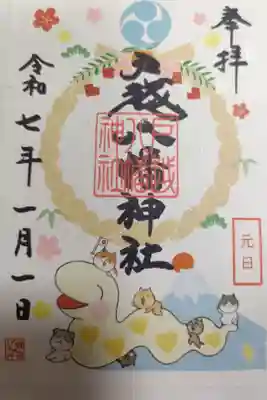 奉拝
元日
戸越八幡神社
戸越
八幡
神社
令和七年一月一日